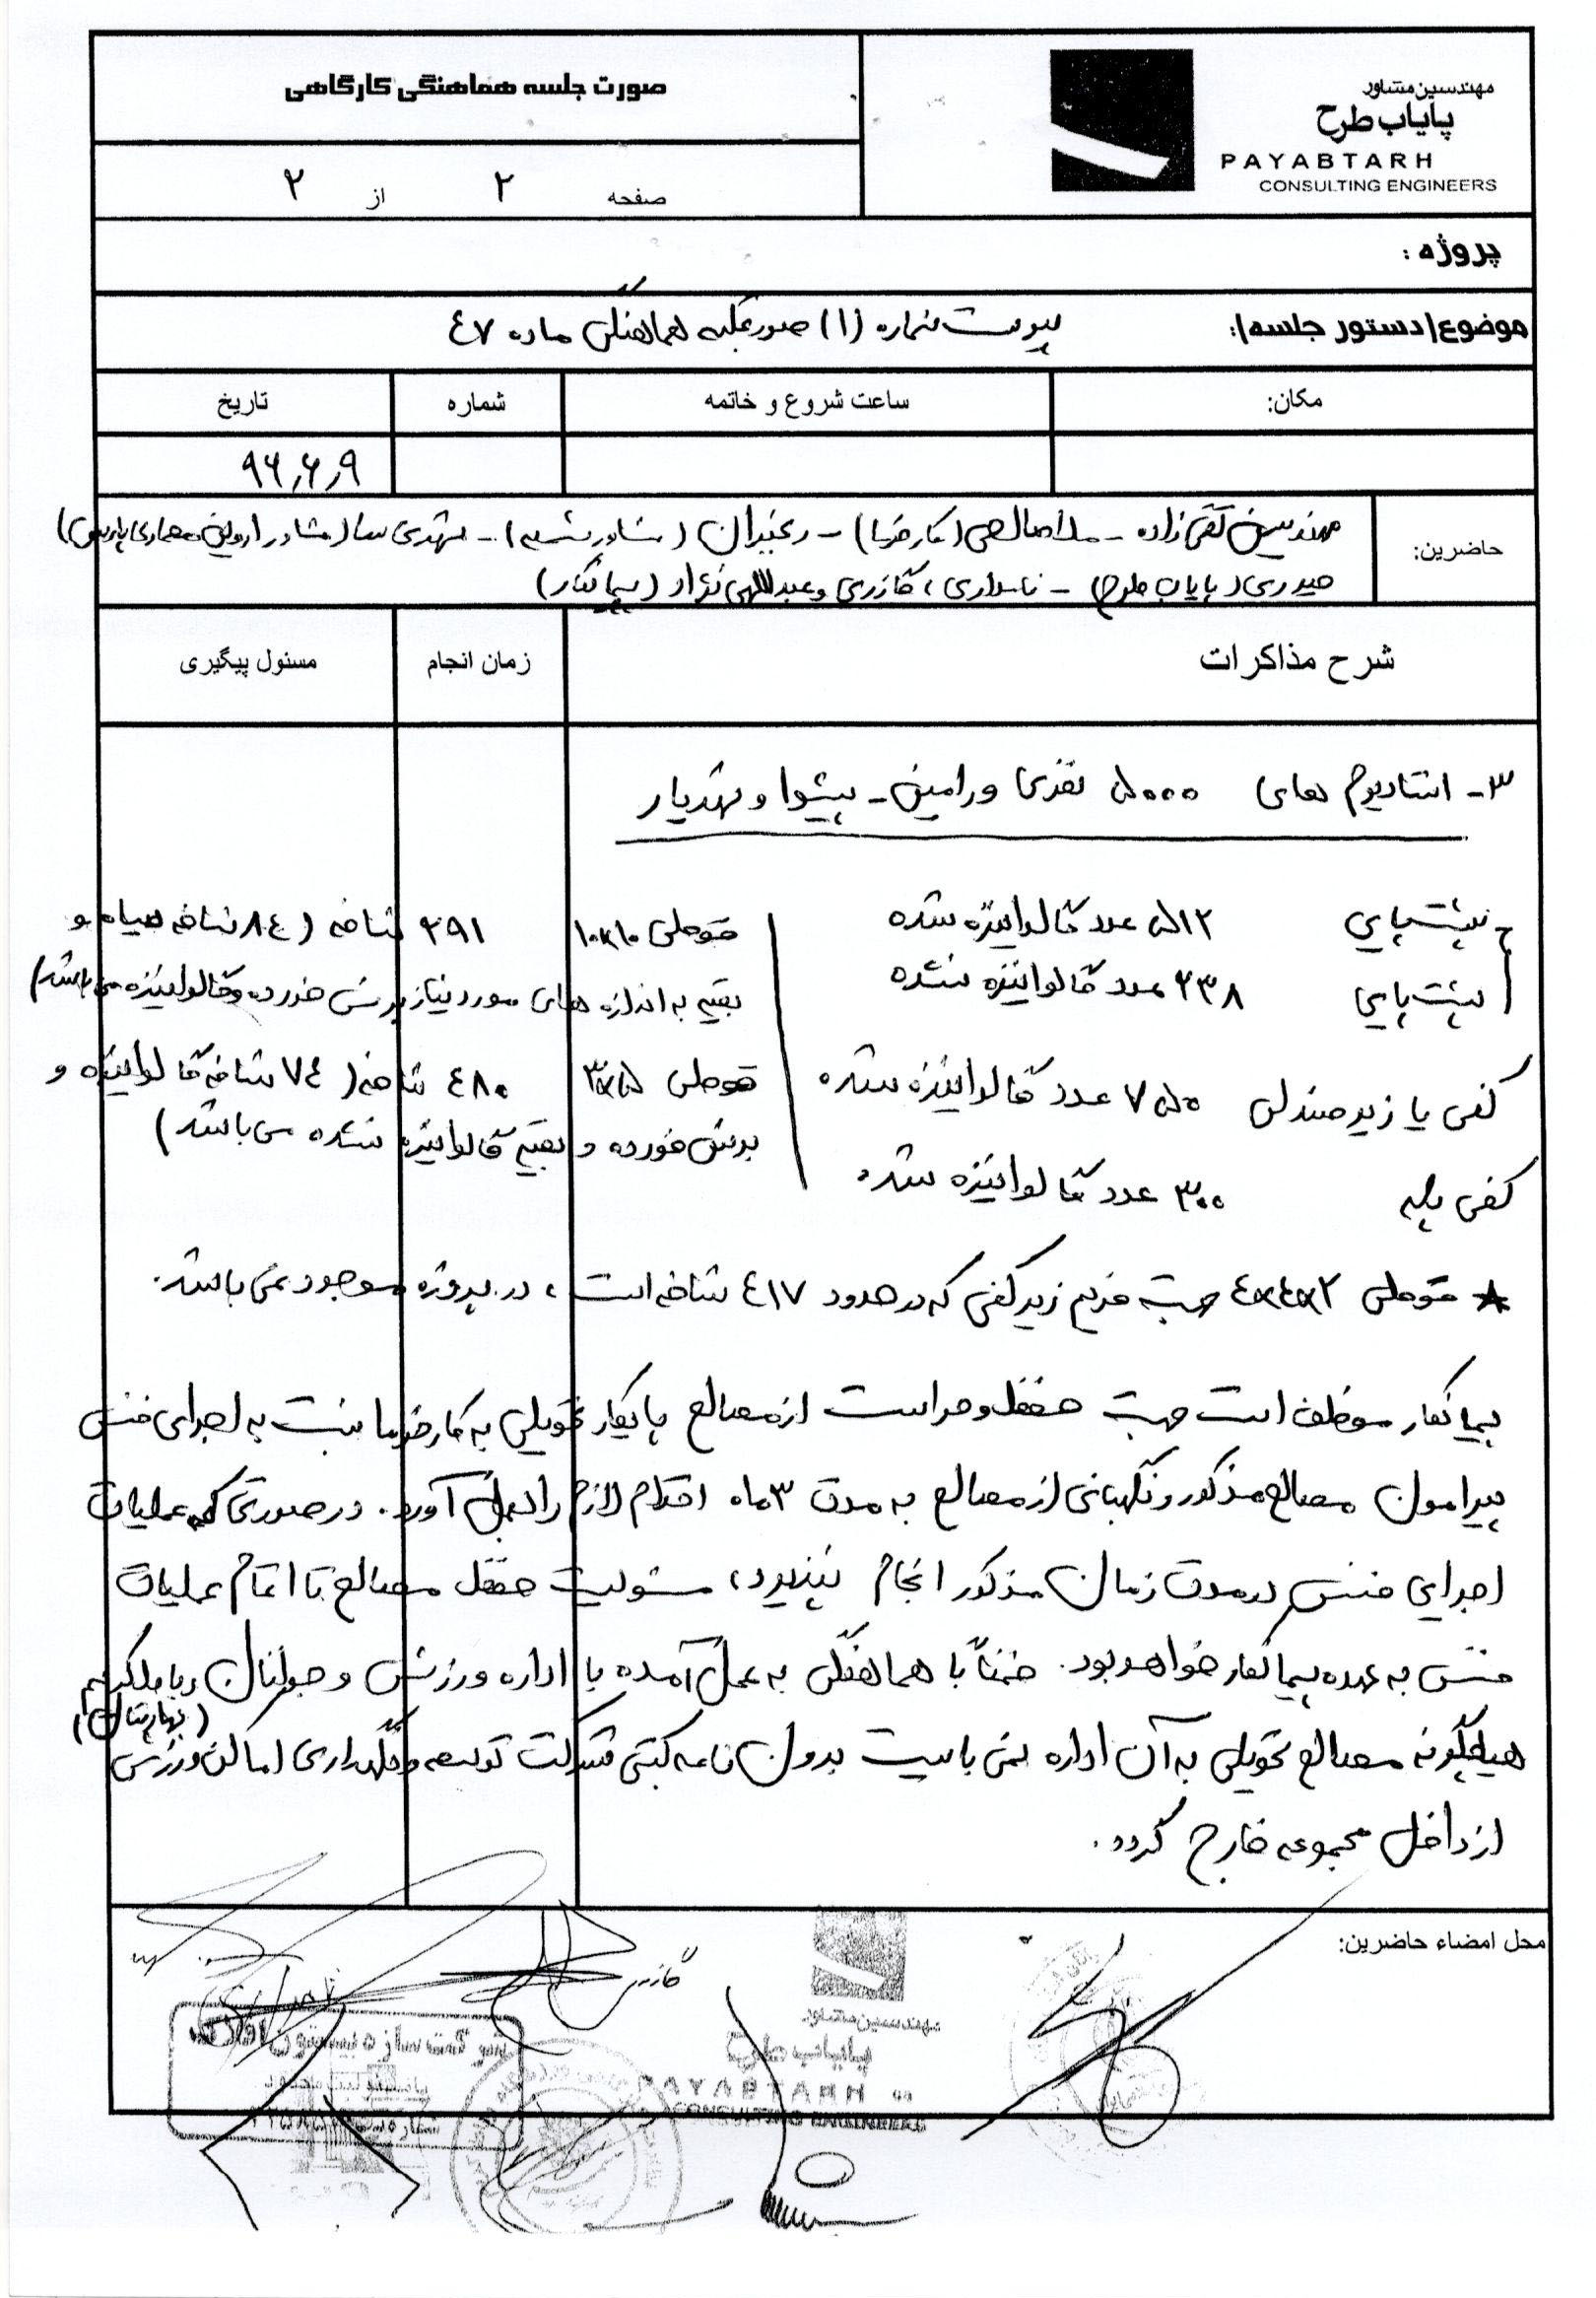 صورت جلسه هماهنگی کارگاهی
مهندسین مشاور
پایاب طرح
PAYABTARH
CONSULTING ENGINEERS
صفحه ۲ از ۲
پروژه :
موضوع(دستور جلسه): پیوست شماره (۱) صورتجلسه هماهنگی ماده ۴۷
مکان: ساعت شروع و خاتمه شماره تاریخ
۹۶,۶,۹
حاضرین: مهندسین تقی زاده - ملاصالحی (کارفرما) - رنجبران ( ) - مهدی سا (مشاور معماری پارس)
حیدری (پایاب طرح) - ، گازری و عبداللهی نژاد (پیمانکار)
شرح مذاکرات زمان انجام مسئول پیگیری
۳- استادیوم های ۵۰۰۰ نفری ورامین - پیشوا و شهریار
پشت پایی ۵۱۲ عدد گالوانیزه شده
پشت پایی ۲۳۸ عدد گالوانیزه نشده
کفی یا زیر صندلی ۷۵۰ عدد گالوانیزه شده
کفی پله ۳۰۰ عدد گالوانیزه شده
قوطی ۱۰×۱۰ ۲۹۱ شاخه (۸۴ شاخه سیاه و
بقیه به اندازه های مورد نیاز برش خورده و گالوانیزه می باشد)
قوطی ۳×۵ ۴۸۰ شاخه (۷۴ شاخه گالوانیزه و
برش خورده و بقیه گالوانیزه نشده می باشد)
* قوطی ۴×۴×۲ جهت فریم زیر کفی که در حدود ۴۱۷ شاخه است ، در پروژه موجود نمی باشد.
پیمانکار موظف است جهت حفظ و حراست از مصالح پایکار تحویلی به کارفرما نسبت به اجرای فنس
پیرامون مصالح مذکور و نگهبانی از مصالح به مدت ۳ ماه اقدام لازم را بعمل آورد. در صورتی که عملیات
اجرایی فنس در مدت زمان مذکور انجام نپذیرد، مسئولیت حفظ مصالح تا اتمام عملیات
فنس به عهده پیمانکار خواهد بود. ضمناً با هماهنگی به عمل آمده با اداره ورزش و جوانان رباط کریم
(بهارستان)
هیچگونه مصالح تحویلی به آن اداره نمی بایست بدون نامه کتبی شرکت توسعه و نگهداری اماکن ورزشی
از داخل مجموعه خارج گردد.
محل امضاء حاضرین:
گازری
مهندسین مشاور
پایاب طرح
PAYABTARH
CONSULTING ENGINEERS
شرکت سازه بیستون
با مسئولیت محدود